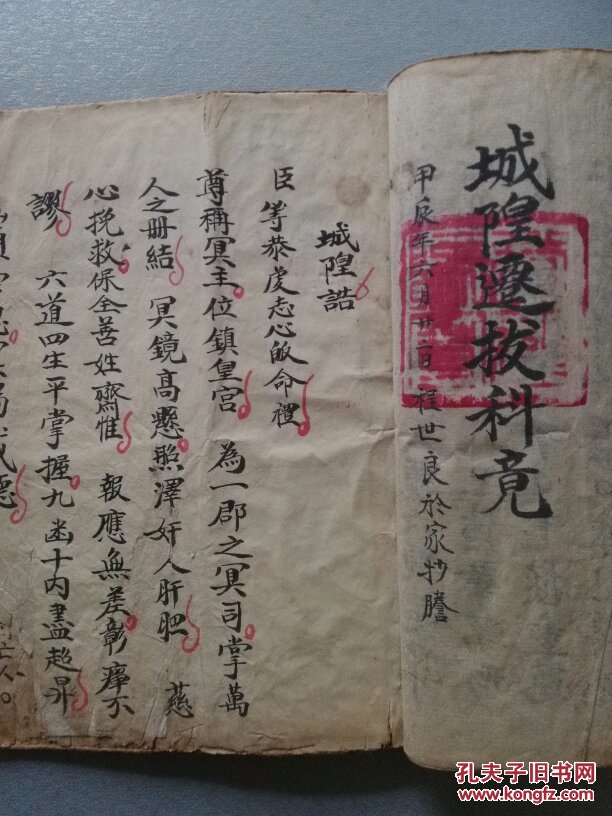 城隍遷拔科竟
甲辰年六月廿二日 程世良於家抄謄
城隍誥
臣等恭虔志心皈命禮
尊稱冥主位鎮皇宮 為一郡之冥司掌萬
人之冊結 冥鏡高懸照澤奸人肝肥 慈
心挽救保全善姓齋惟 報應無差彰瘅不
謬 六道四生平掌握九幽十內盡超昇
孔夫子旧书网
www.kongfz.com